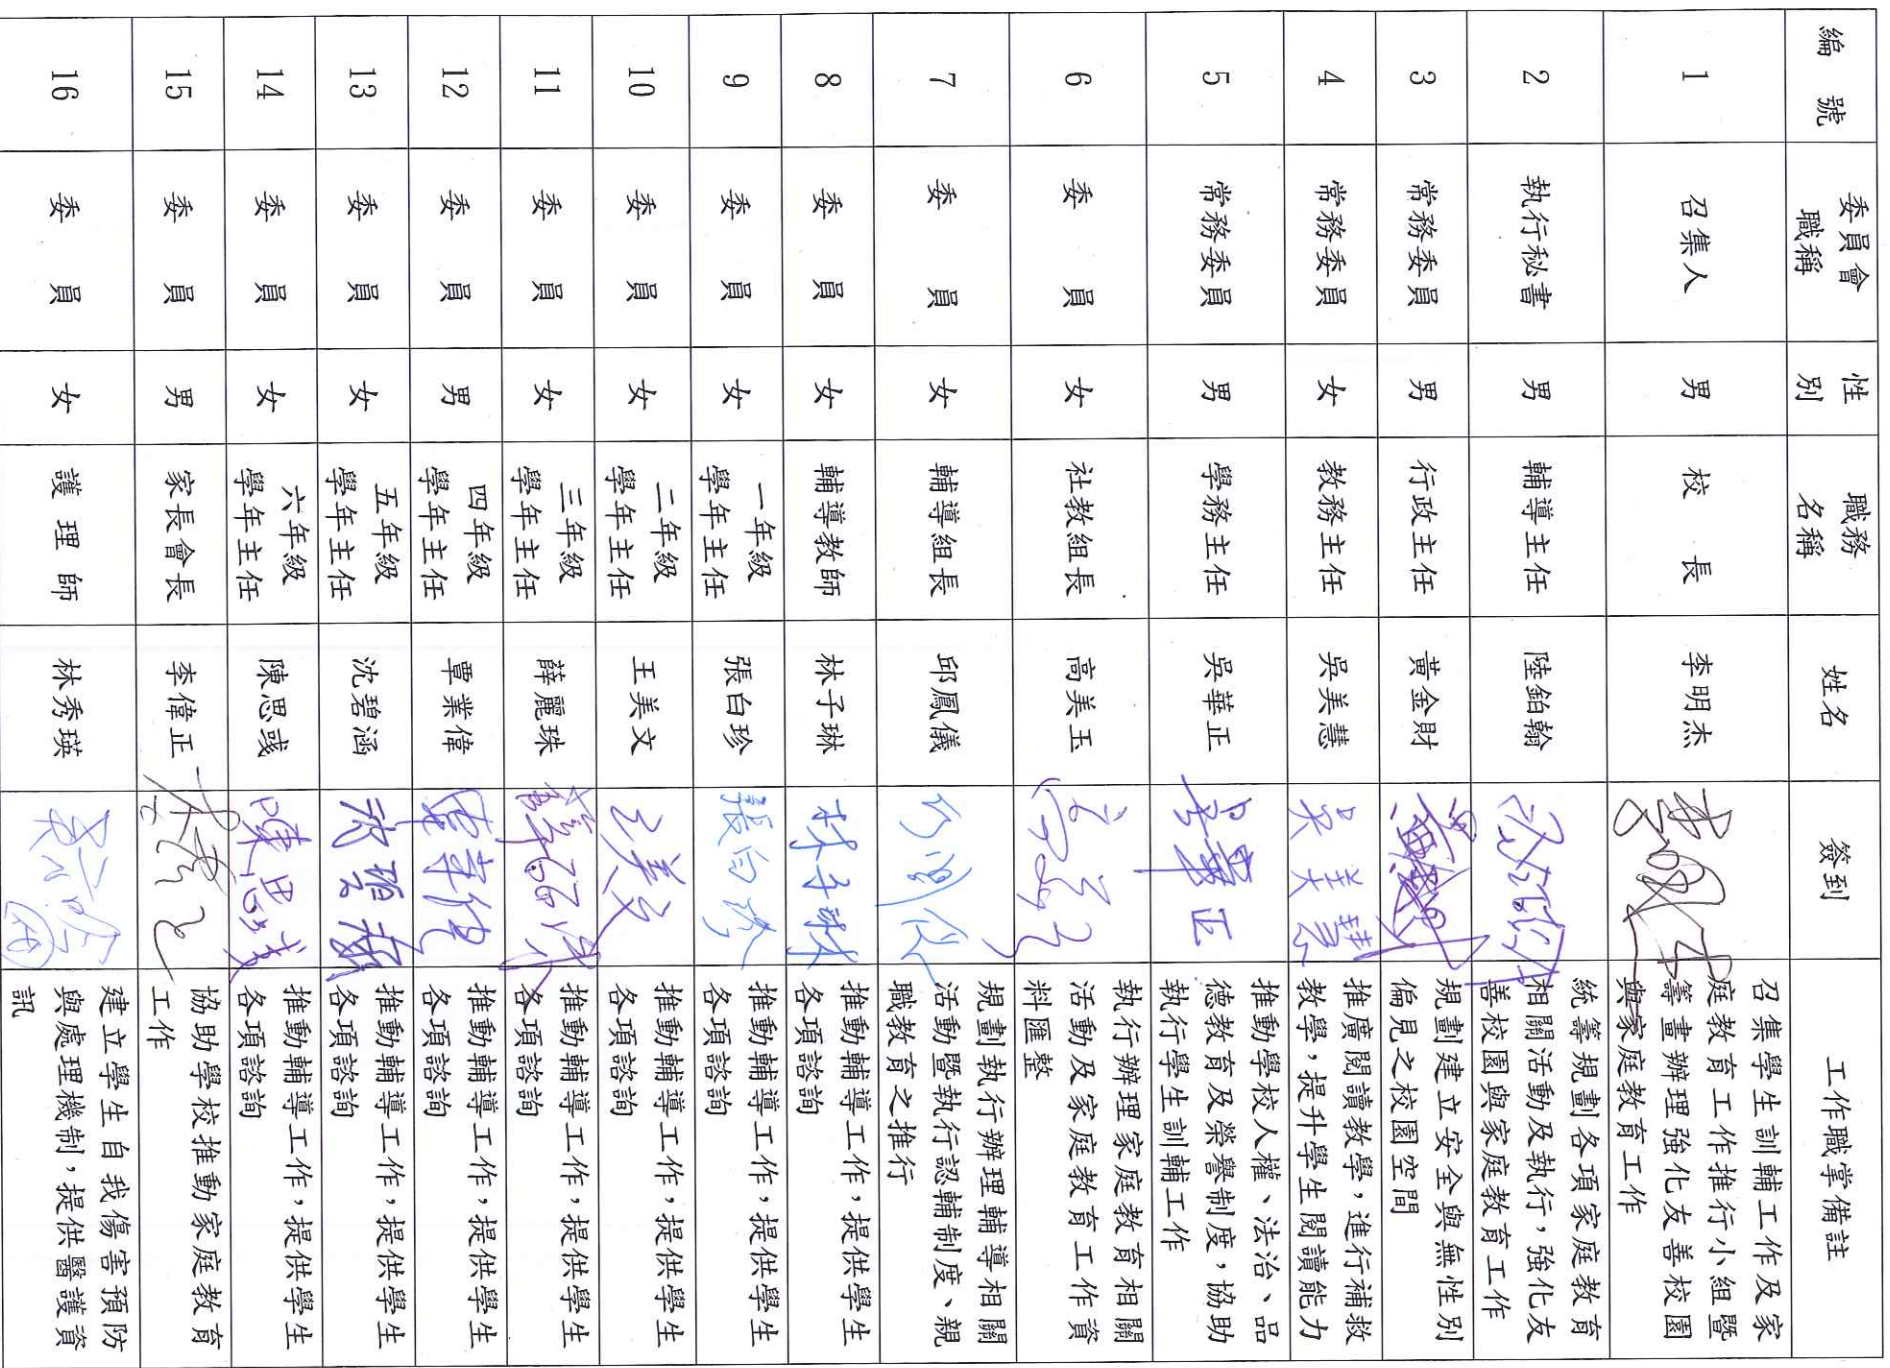 編號 委員會職稱 性別 職務名稱 姓名 簽到 工作職掌備註
1 召集人 男 校長 李明杰 召集學生訓輔工作及家
庭教育工作推行小組暨
籌畫辦理強化友善校園
與家庭教育工作
2 執行秘書 男 輔導主任 陸鉑翰 統籌規劃各項家庭教育
相關活動及執行,強化友
善校園與家庭教育工作
3 常務委員 男 行政主任 黃金財 規劃建立安全與無性別
偏見之校園空間
4 常務委員 女 教務主任 吳美慧 吳美慧 推廣閱讀教學,進行補救
教學,提升學生閱讀能力
5 常務委員 男 學務主任 吳華正 吳華正 推動學校人權、法治、品
德教育及榮譽制度,協助
執行學生訓輔工作
6 委員 女 社教組長 高美玉 執行辦理家庭教育相關
活動及家庭教育工作資
料匯整
7 委員 女 輔導組長 邱鳳儀 規劃執行辦理輔導相關
活動暨執行認輔制度、親
職教育之推行
8 委員 女 輔導教師 林子琳 林子琳 推動輔導工作,提供學生
各項諮詢
9 委員 女 一年級
學年主任 張白珍 張白珍 推動輔導工作,提供學生
各項諮詢
10 委員 女 二年級
學年主任 王美文 王美文 推動輔導工作,提供學生
各項諮詢
11 委員 女 三年級
學年主任 薛麗珠 薛麗珠 推動輔導工作,提供學生
各項諮詢
12 委員 男 四年級
學年主任 覃業偉 覃業偉 推動輔導工作,提供學生
各項諮詢
13 委員 女 五年級
學年主任 沈碧涵 沈碧涵 推動輔導工作,提供學生
各項諮詢
14 委員 女 六年級
學年主任 陳思彧 陳思彧 推動輔導工作,提供學生
各項諮詢
15 委員 男 家長會長 李偉正 協助學校推動家庭教育
工作
16 委員 女 護理師 林秀瑛 建立學生自我傷害預防
與處理機制,提供醫護資
訊